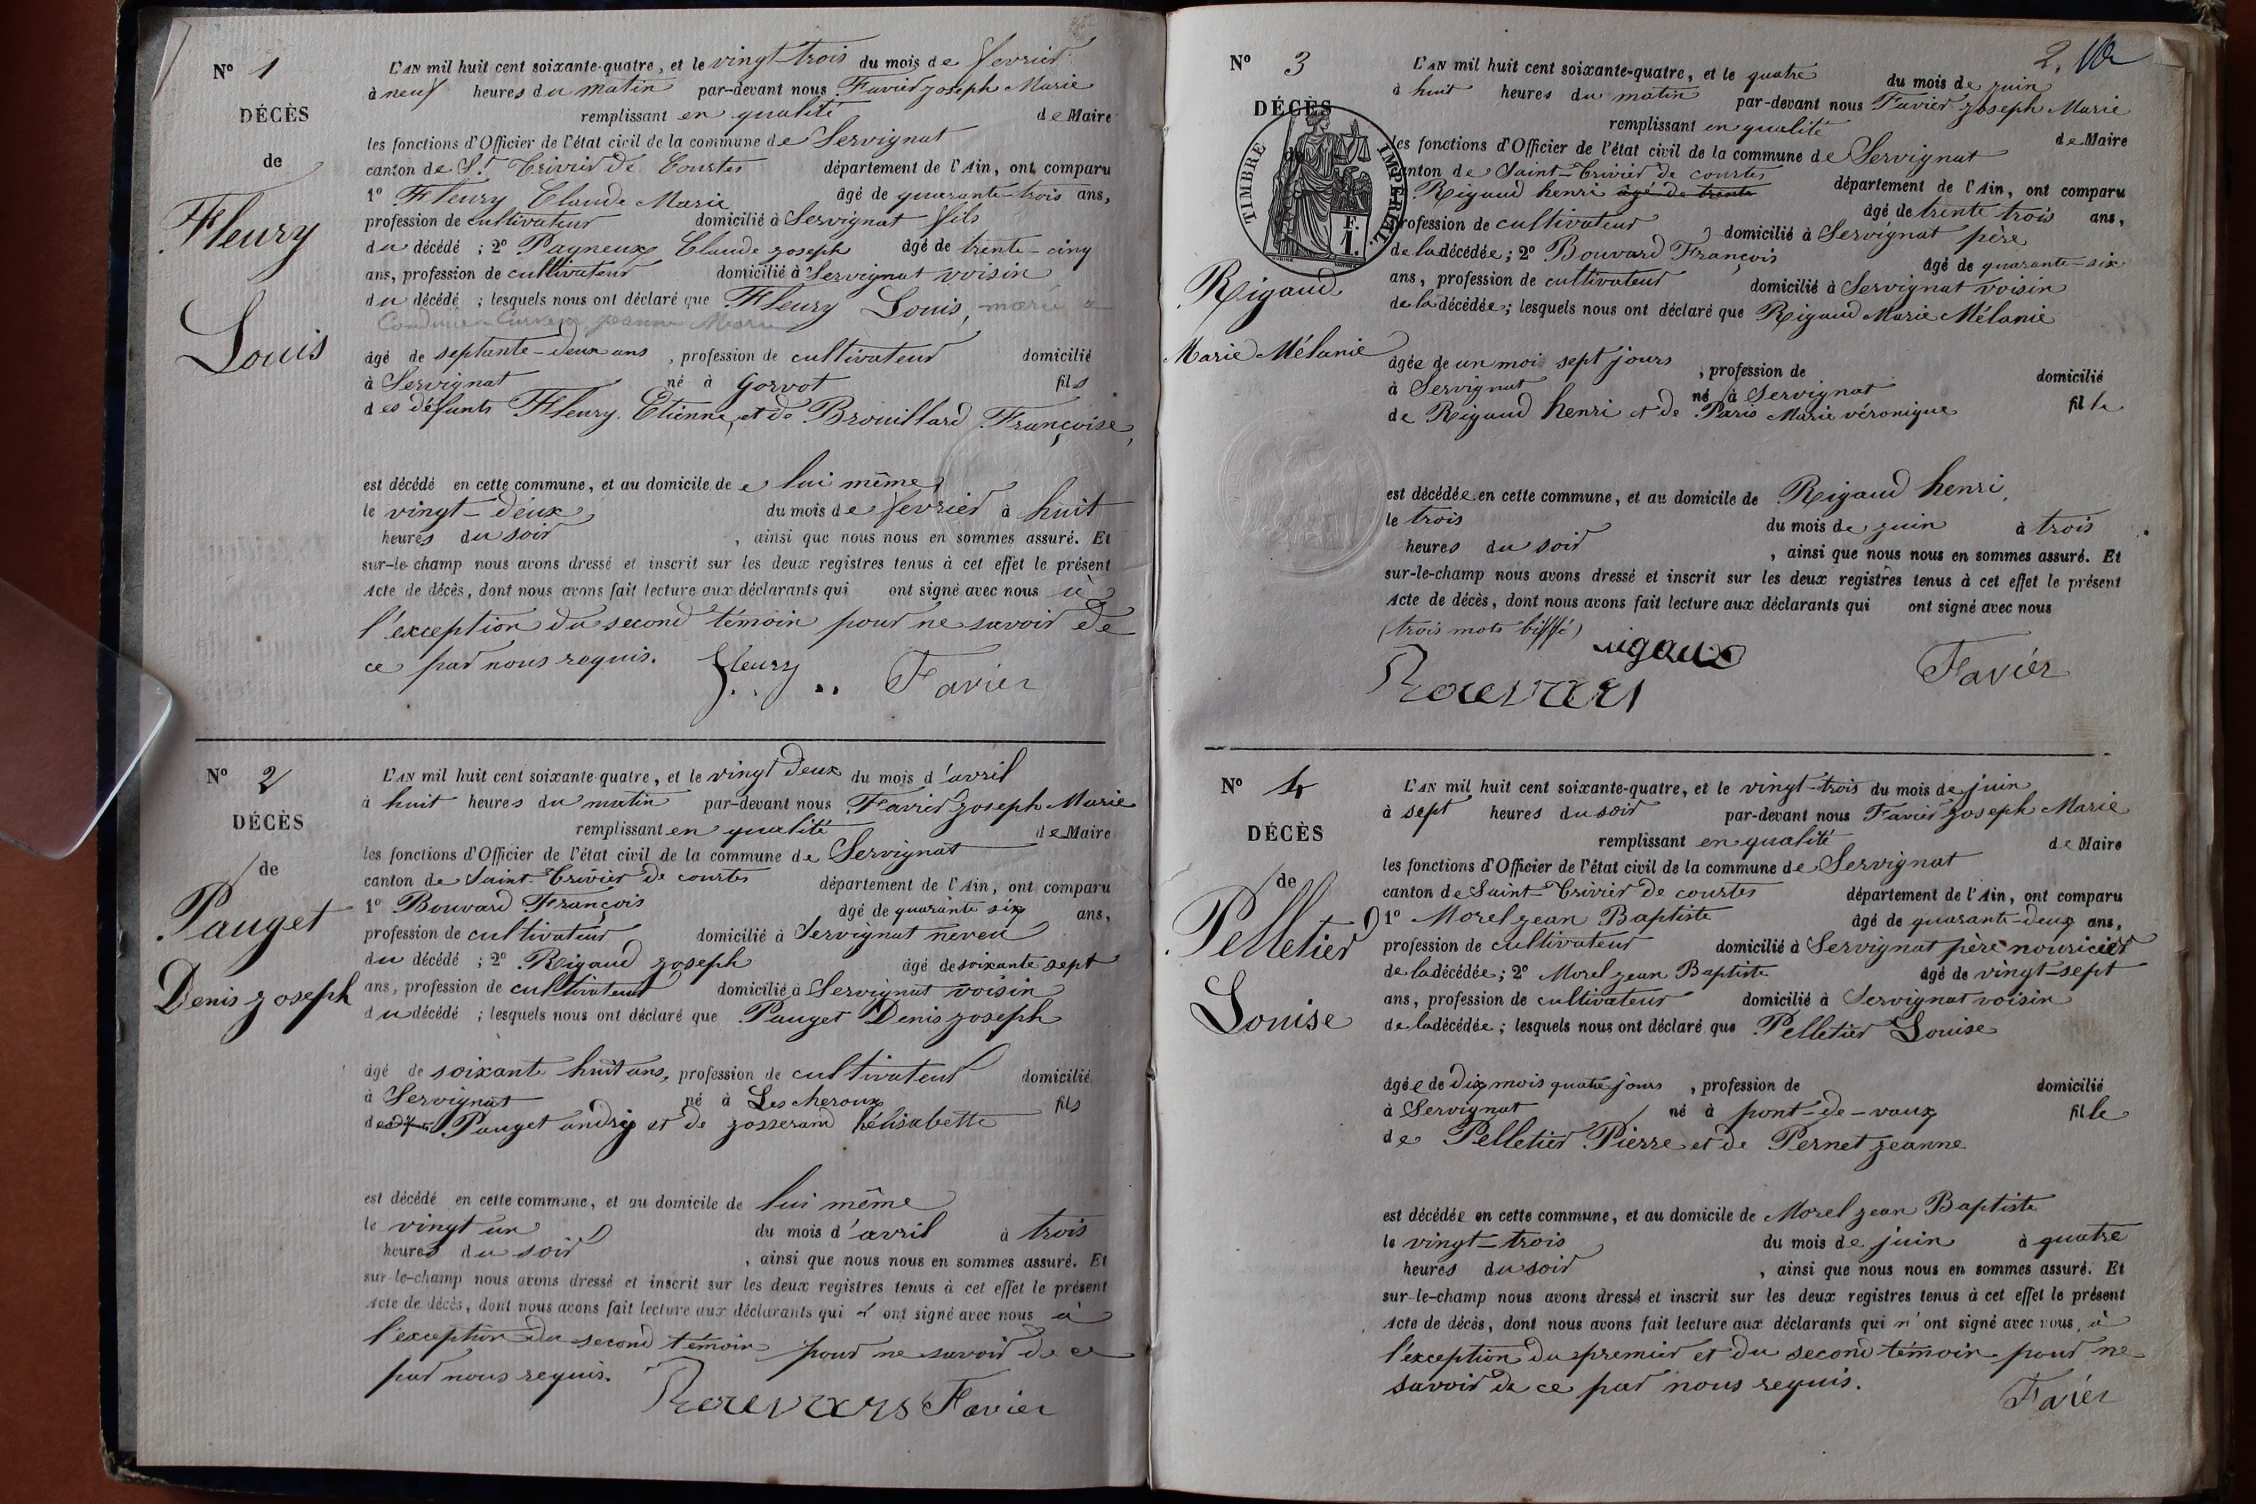 N° 1
DÉCÈS
de
Fleury
Louis
L'AN mil huit cent soixante-quatre, et le vingt-trois du mois de fevrier
à neuf heures du matin par-devant nous Favier Joseph Marie
remplissant en qualité de Maire
les fonctions d'Officier de l'état civil de la commune de Servignat
canton de St. Trivier de Courtes département de l'Ain, ont comparu
1° Fleury Claude Marie âgé de quarante-trois ans,
profession de cultivateur domicilié à Servignat fils
du décédé ; 2° Pagneux Claude joseph âgé de trente-cinq
ans, profession de cultivateur domicilié à Servignat voisin
du décédé ; lesquels nous ont déclaré que Fleury Louis, marié a
jeanne Marie
âgé de septante-deux ans, profession de cultivateur domicilié
à Servignat né à Gorvot fils
des défunts Fleury Etienne, et de Brouillard Françoise,
est décédé en cette commune, et au domicile de lui même
le vingt-deux du mois de fevrier à huit
heures du soir, ainsi que nous nous en sommes assuré. Et
sur-le-champ nous avons dressé et inscrit sur les deux registres tenus à cet effet le présent
Acte de décès, dont nous avons fait lecture aux déclarants qui ont signé avec nous à
l'exception du second témoin pour ne savoir de
ce par nous requis. Fleury Favier
N° 2
DÉCÈS
de
Pauget
Denis joseph
L'AN mil huit cent soixante-quatre, et le vingt deux du mois d'avril
à huit heures du matin par-devant nous Favier Joseph Marie
remplissant en qualité de Maire
les fonctions d'Officier de l'état civil de la commune de Servignat
canton de Saint-Trivier de courtes département de l'Ain, ont comparu
1° Bouvard François âgé de quarante six ans,
profession de cultivateur domicilié à Servignat neveu
du décédé ; 2° Rigaud joseph âgé de soixante sept
ans, profession de cultivateur domicilié à Servignat voisin
du décédé ; lesquels nous ont déclaré que Pauget Denis joseph
âgé de soixante huit ans, profession de cultivateur domicilié
à Servignat né à Lescheroux fils
de Pauget andré et de josserand hélisabette
est décédé en cette commune, et au domicile de lui même
le vingt un du mois d'avril à trois
heures du soir, ainsi que nous nous en sommes assuré. Et
sur-le-champ nous avons dressé et inscrit sur les deux registres tenus à cet effet le présent
Acte de décès, dont nous avons fait lecture aux déclarants qui ont signé avec nous à
l'exception du second témoin pour ne savoir de ce
par nous requis.
Bouvard Favier
2.
N° 3
DÉCÈS
de
TIMBRE IMPÉRIAL
F. 1.
Rigaud
Marie Mélanie
L'AN mil huit cent soixante-quatre, et le quatre du mois de juin
à huit heures du matin par-devant nous Favier joseph Marie
remplissant en qualité de Maire
les fonctions d'Officier de l'état civil de la commune de Servignat
canton de Saint-Trivier de courtes département de l'Ain, ont comparu
Rigaud henri âgé de trente âgé de trente trois ans,
profession de cultivateur domicilié à Servignat père
de la décédée ; 2° Bouvard François âgé de quarante-six
ans, profession de cultivateur domicilié à Servignat voisin
de la décédée ; lesquels nous ont déclaré que Rigaud Marie Mélanie
âgée de un mois sept jours, profession de domicilié
à Servignat né à Servignat fille
de Rigaud henri et de Paris Marie véronique
est décédée en cette commune, et au domicile de Rigaud henri,
le trois du mois de juin à trois
heures du soir, ainsi que nous nous en sommes assuré. Et
sur-le-champ nous avons dressé et inscrit sur les deux registres tenus à cet effet le présent
Acte de décès, dont nous avons fait lecture aux déclarants qui ont signé avec nous
(trois mots biffé) rigaud
Bouvard Favier
N° 4
DÉCÈS
de
Pelletier
Louise
L'AN mil huit cent soixante-quatre, et le vingt-trois du mois de juin
à sept heures du soir par-devant nous Favier joseph Marie
remplissant en qualité de Maire
les fonctions d'Officier de l'état civil de la commune de Servignat
canton de Saint-Trivier de courtes département de l'Ain, ont comparu
1° Morel jean Baptiste âgé de quarante-deux ans,
profession de cultivateur domicilié à Servignat père nouricier
de la décédée ; 2° Morel jean Baptiste âgé de vingt-sept
ans, profession de cultivateur domicilié à Servignat voisin
de la décédée ; lesquels nous ont déclaré que Pelletier Louise
âgée de dix mois quatre jours, profession de domicilié
à Servignat né à pont-de-vaux fille
de Pelletier Pierre et de Pernet jeanne
est décédée en cette commune, et au domicile de Morel jean Baptiste
le vingt-trois du mois de juin à quatre
heures du soir, ainsi que nous nous en sommes assuré. Et
sur-le-champ nous avons dressé et inscrit sur les deux registres tenus à cet effet le présent
Acte de décès, dont nous avons fait lecture aux déclarants qui n'ont signé avec nous, à
l'exception du premier et du second témoin pour ne
savoir de ce par nous requis. Favier